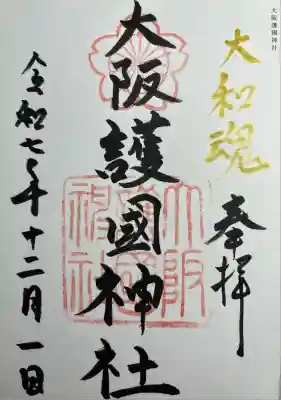 大阪護國神社
大和魂
奉拝
大阪護國神社
大阪護國神社
令和七年十二月一日